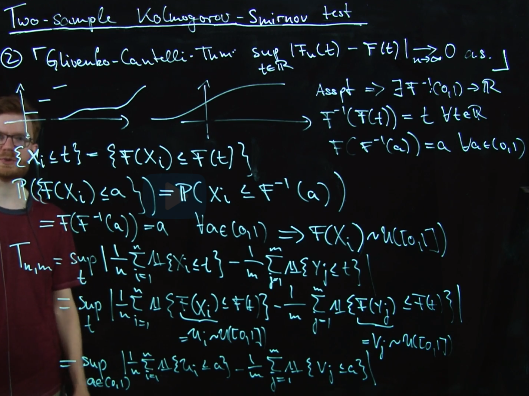 Two-sample Kolmogorov-Smirnov test
② 「Glivenko-Cantelli-Thm: sup_{t∈ℝ} |F_n(t) - F(t)| →_{n→∞} 0 a.s.」
Asspt ⟹ ∃F⁻¹:(0,1)→ℝ
F⁻¹(F(t)) = t ∀t∈ℝ
F(F⁻¹(a)) = a ∀a∈(0,1)
{X_i ≤ t} = {F(X_i) ≤ F(t)}
ℙ({F(X_i) ≤ a}) = ℙ(X_i ≤ F⁻¹(a))
= F(F⁻¹(a)) = a ∀a∈(0,1) ⟹ F(X_i) ~ U([0,1])
T_{n,m} = sup_t |1/n Σ_{i=1}^n 𝟙{X_i ≤ t} - 1/m Σ_{j=1}^m 𝟙{Y_j ≤ t}|
= sup_t |1/n Σ_{i=1}^n 𝟙{F(X_i) ≤ F(t)} - 1/m Σ_{j=1}^m 𝟙{F(Y_j) ≤ F(t)}|
= U_i ~ U([0,1]) = V_j ~ U([0,1])
= sup_{a∈(0,1)} |1/n Σ_{i=1}^n 𝟙{U_i ≤ a} - 1/m Σ_{j=1}^m 𝟙{V_j ≤ a}|